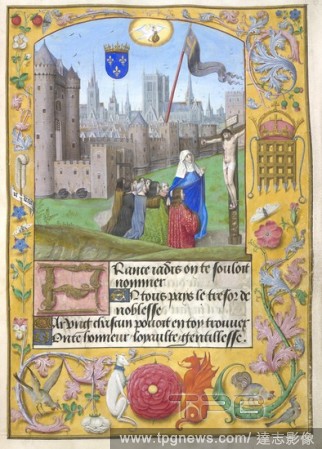 France iadis on te souloit
nommer
En tous pays le tresor de
noblesse
Car vng chascun pouoit en toy trouuer
Bonte honneur loyaulte gentillesse.
TPG
www.tpgnews.com / 達志影像